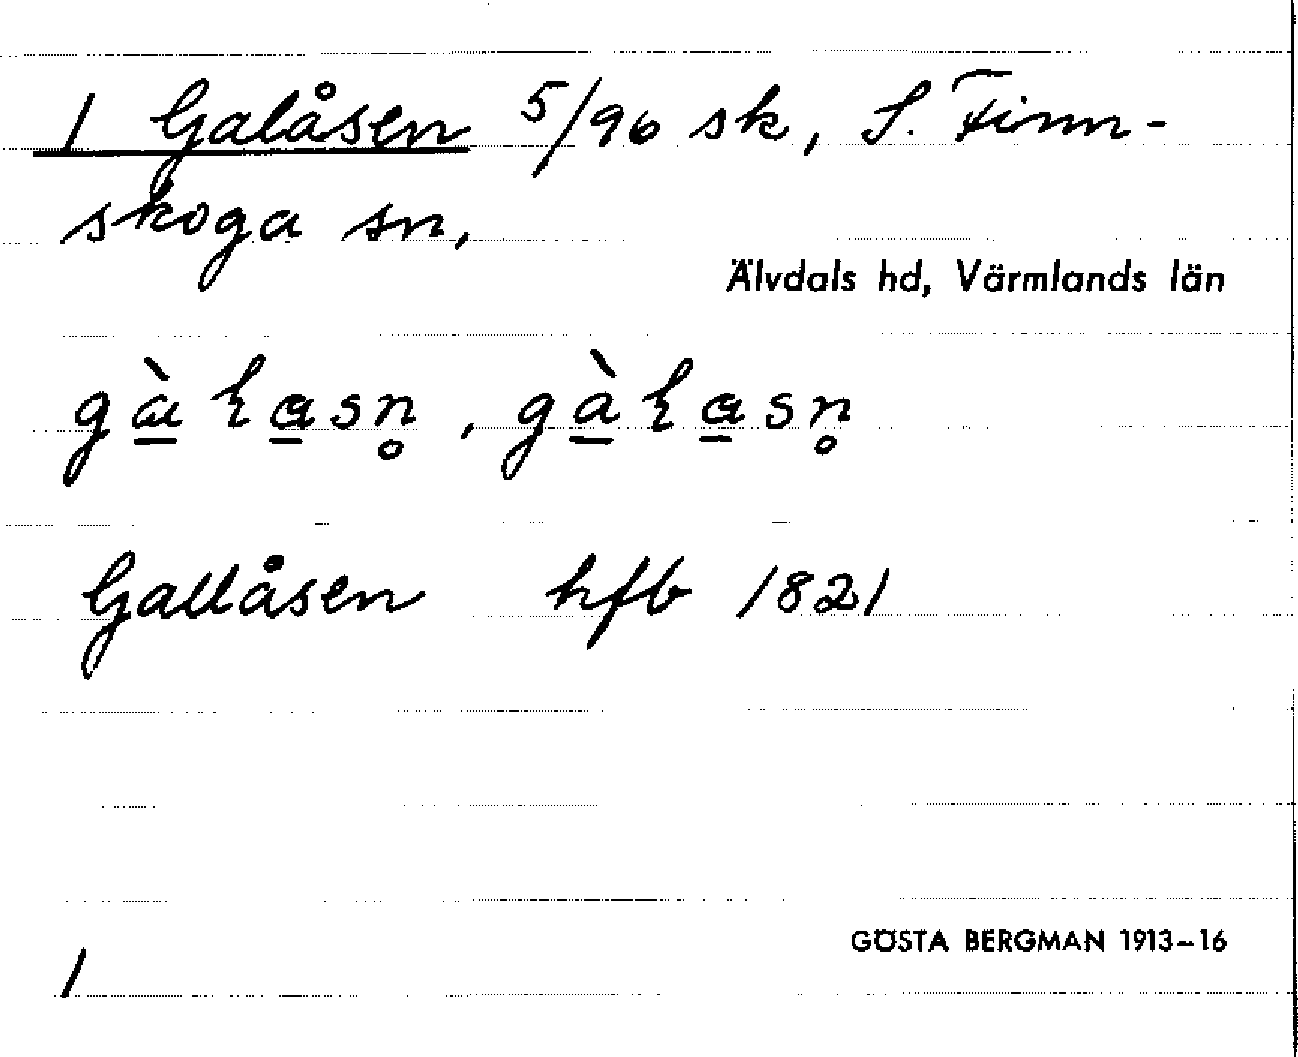 1 Galåsen 5/96 sk, S. Finn-
skoga sn,
Älvdals hd, Värmlands län
gàɽasn̥, gàɽasn̥
Gallåsen hfb 1821
GÖSTA BERGMAN 1913–16
1